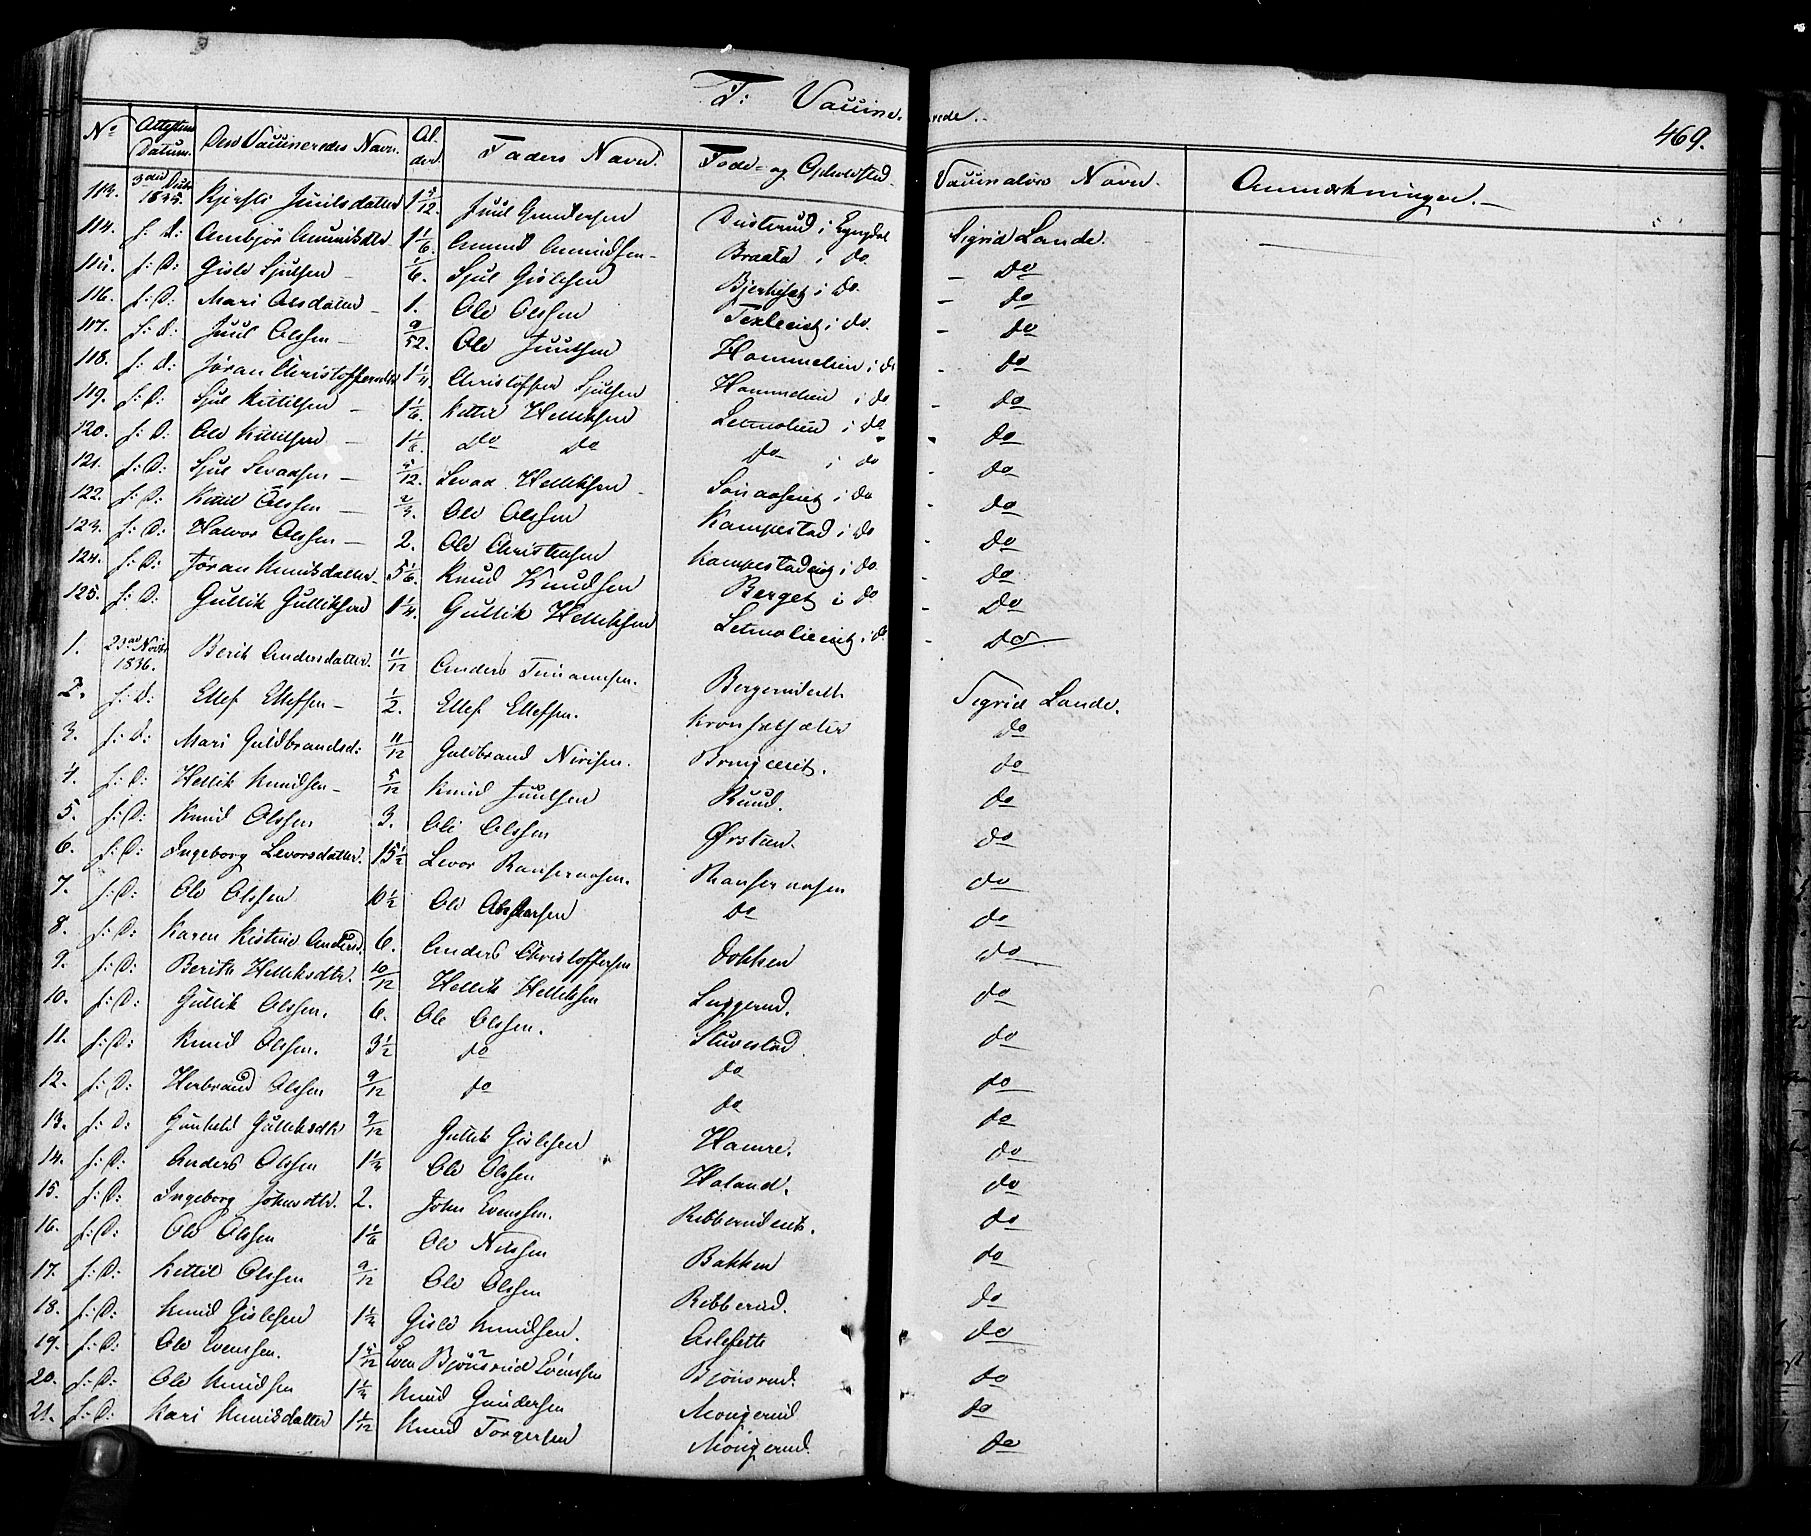 F: Vaccinerede.
469.
No Attestens Datum. Den Vaccineredes Navn. Alder. Faders Navn. Føde- og Opholdsted. Vaccinateurs Navn. Anmærkninger.
113. 3die Decbr 1835. Kjersti Juulsdatter 1 5/12 Juul Gundersen Dusterud i Lyngdal Sigrid Lande.
114. s: D: Ambjør Amundsdtr 1 1/6. Amund Amundsen Braata i do - do
115. s: D: Gisle Sjulsen 1/6. Sjul Gislesen Bjerkeset i do. - do
116. s: D: Mari Olsdatter 1. Ole Olssen i do. - do
117. s: D: Juul Olssen 9/52. Ole Juulsen Hammelien i do do
118. s: D: Jøran Christoffersdtr 1 1/4. Christoffer Sjulsen Hammelien i do - do
119. s: D: Sjul Kittilsen 1 1/6. Kittil Helliksen Letmolien i do - do
120. s: D: Ole Kittilsen 1 1/6. do do do i do - do
121. s: D: Sjul Sevadsen 5/12. Sevad Helliksen i do - do
122. s: D: Kittil Olssen 2/3. Ole Olssen Kampestad i do do
123. s: D: Halvor Olssen 2. Ole Christensen Kampestadeiet i do - do
124. s: D: Jøran Knudsdatter 5 1/6 Knud Knudsen Berget i do - do
125. s: D: Gullik Gulliksen 1 1/4. Gullik Helliksen Letmolieeiet i do - do
1. 23de Novbr 1836. Berit Andersdatter. 11/12 Anders Timannsen. Bergerudeth Sigrid Lande.
2. s: D: Ellef Ellefsen 1/2. Ellef Ellefsen. do
3. s: D: Mari Guldbrandsd: 11/12 Guldbrand Nirisen. do
4. s: D: Hellik Knudsen 5/12 Knud Juulsen Ruud. do
5. s: D: Knud Olssen 3. Ole Olssen Ørstan. do
6. s: D: Ingeborg Levorsdatter. 15 1/2 Levor Ramsernasen. Ramsernasen do
7. s: D: Ole Olssen 10 1/2 Ole do do
8. s: D: Karen Kistine Andersd. 6. Anders Christoffersen Dokken do
9. s: D: Berith Helliksdtr. 10/12 Hellik Helliksen Luggerud. do
10. s: D: Gullik Olssen. 6. Ole Olssen. Stuvestad. do
11. s: D: Knud Olssen. 3 1/2 do do do
12. s: D: Herbrand Olssen 9/12 do do do
13. s: D: Gunhild Gulliksdtr 9/12 Gullik Gislesen Hamre. do
14. s: D: Anders Olssen 1 1/4 Ole Olssen Haland. do
15. s: D: Ingeborg Johnsdtr. 2. John Evenssen. Ribberudeiet. do
16. s: D: Ole Olssen 1 1/6 Ole Nilssen Bakken do
17. s: D: Kittil Olssen 9/12 Ole Olssen Ribberud. do
18. s: D: Knud Gislesen 1 1/4 Gisle Knudsen. Aslefette do
19. s: D: Ole Evenssen. 1 5/12 Even Bjønsrud Evenssen Bjønsrud. do
20. s: D: Ole Knudsen 1 1/4 Knud Gundersen Mongerud do
21. s: D: Kari Knudsdatter 1 1/12 Knud Torgersen Mongerud. do